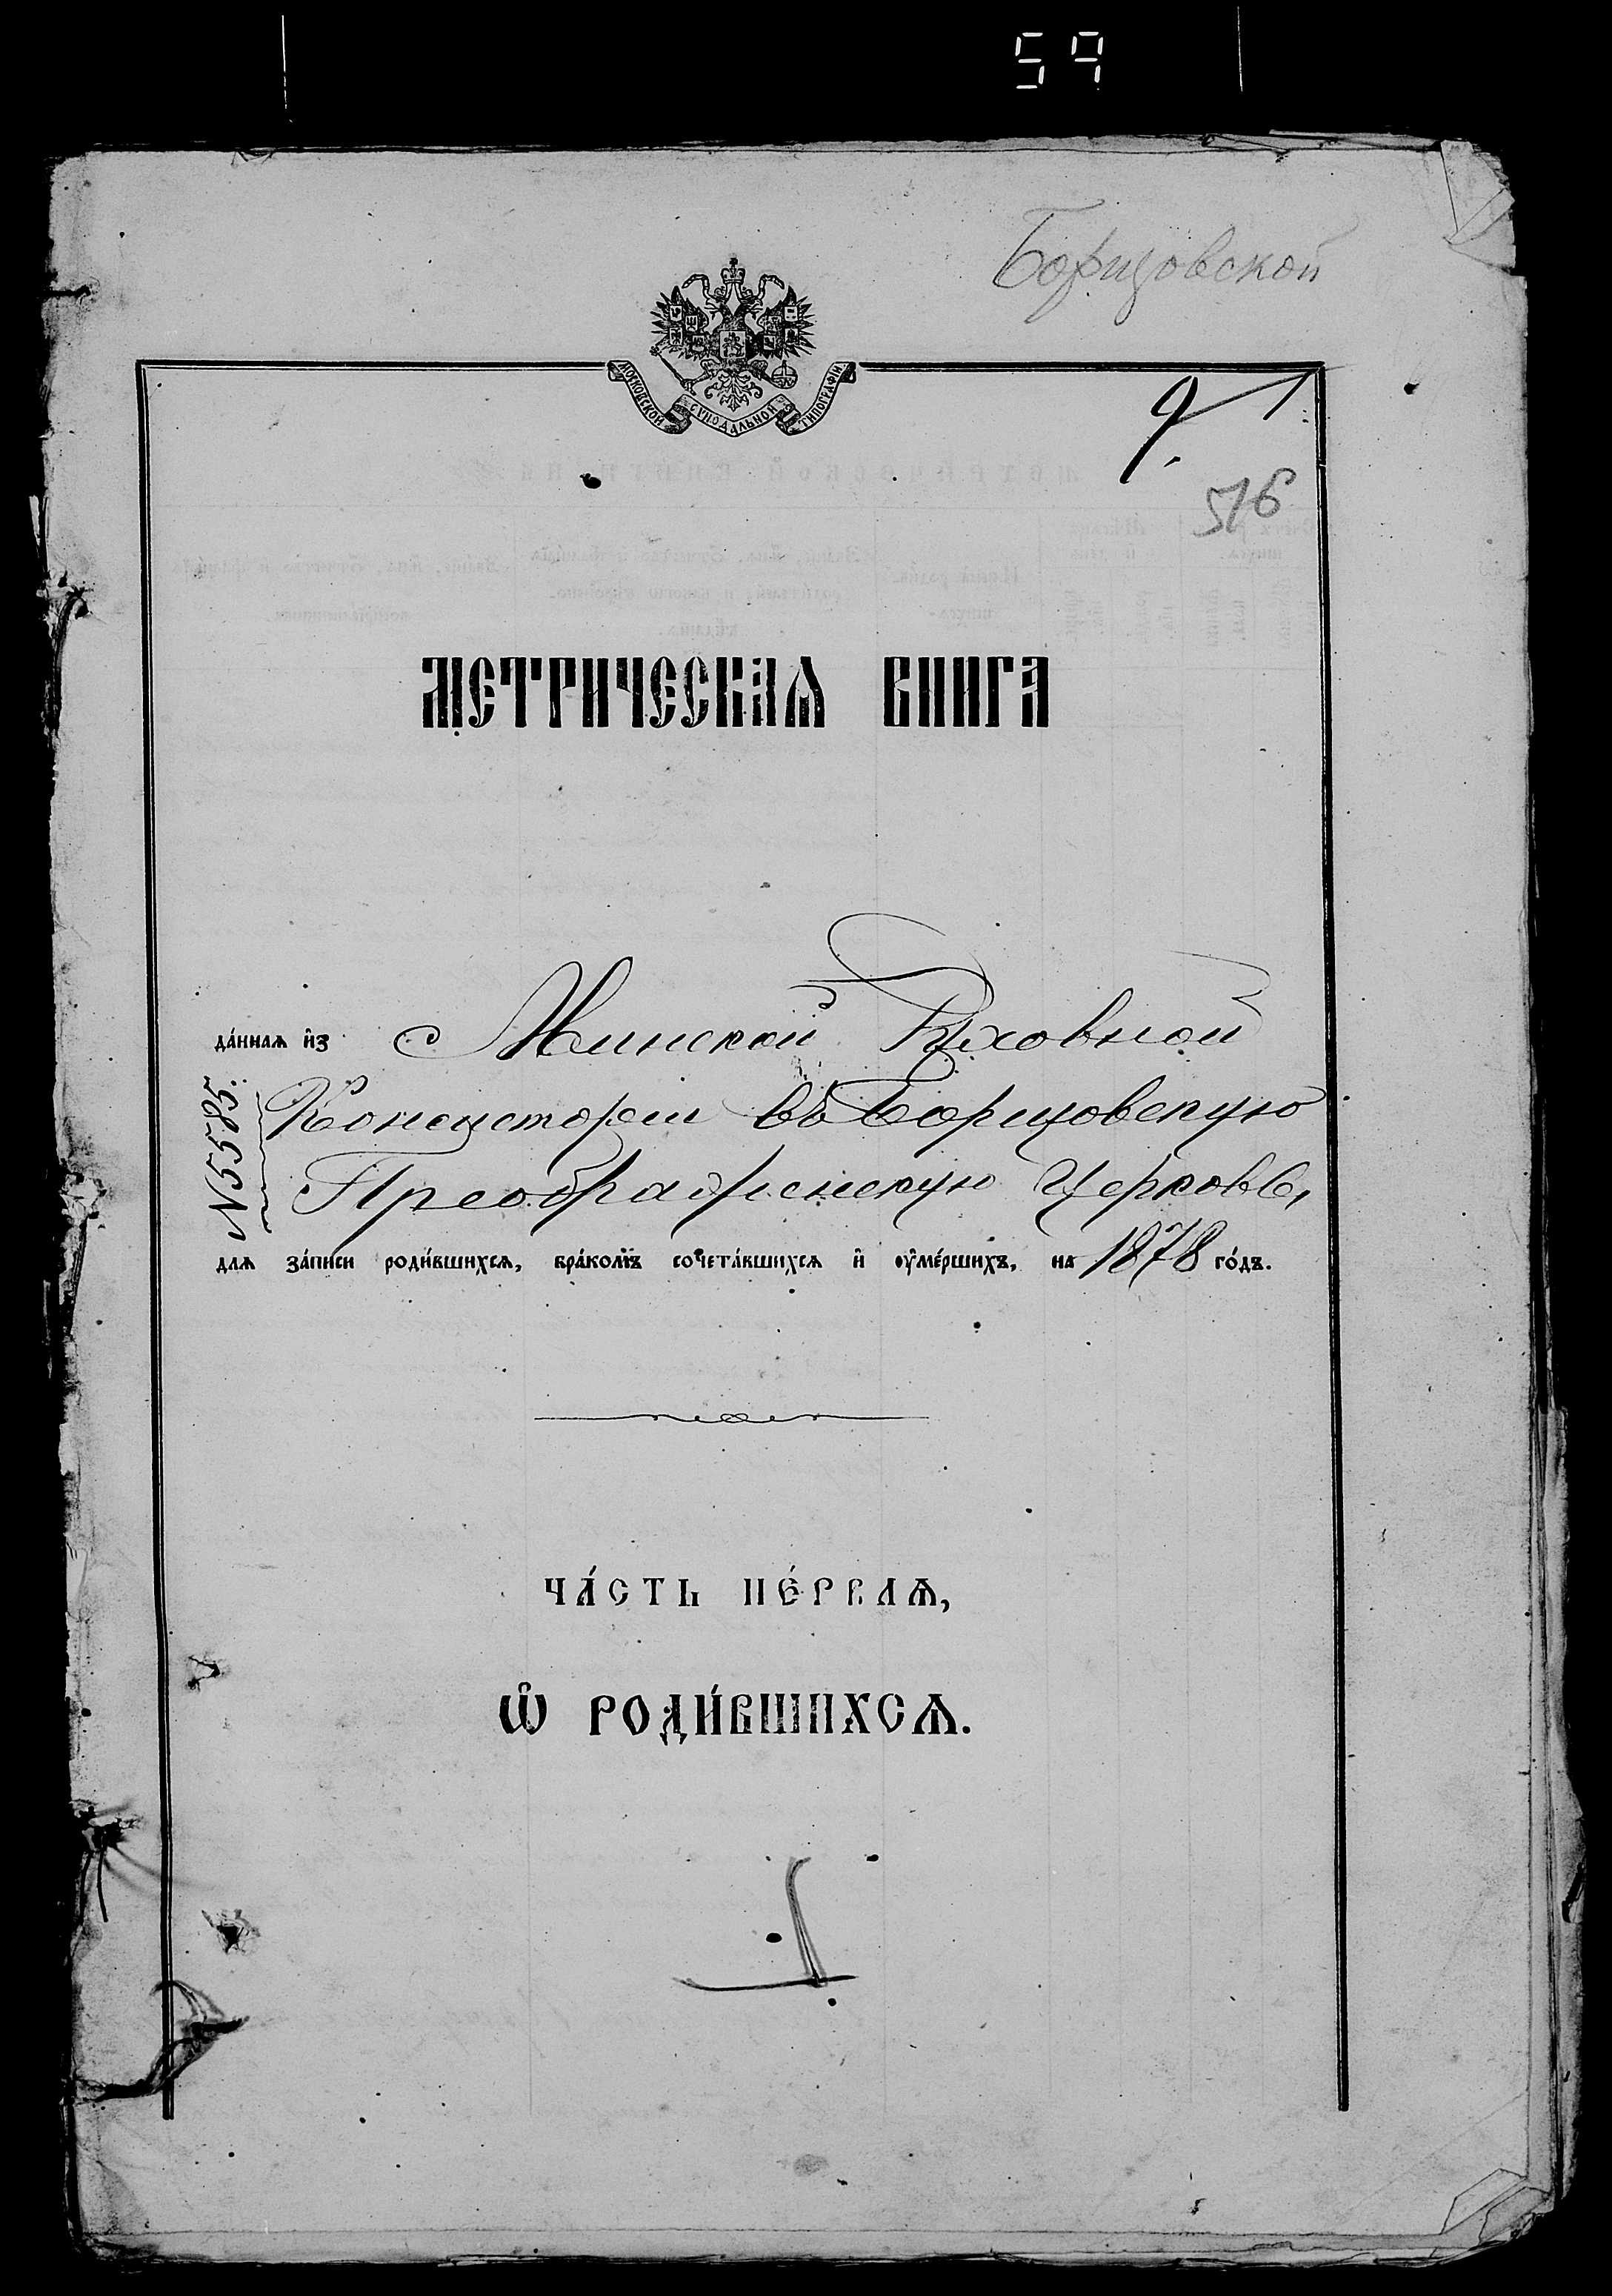 59
Борщовской
МОСКОВСКОЙ СѴНОДАЛЬНОЙ ТИПОГРАФІИ
9
516
МЕТРИЧЕСКАѦ КНИГА
да́ннаѧ и҆з Минской Духовной
Консисторіи въ Борщовскую
Преображенскую Церковь,
N 5585.
длѧ за́писи роди́вшихсѧ, бра́комъ сочета́вшихсѧ и҆ ᲂу҆ме́ршихъ, на 1878 го́дъ.
ЧА́СТЬ ПЕ́РВАѦ,
Ѡ҆ РОДИ́ВШИХСѦ.